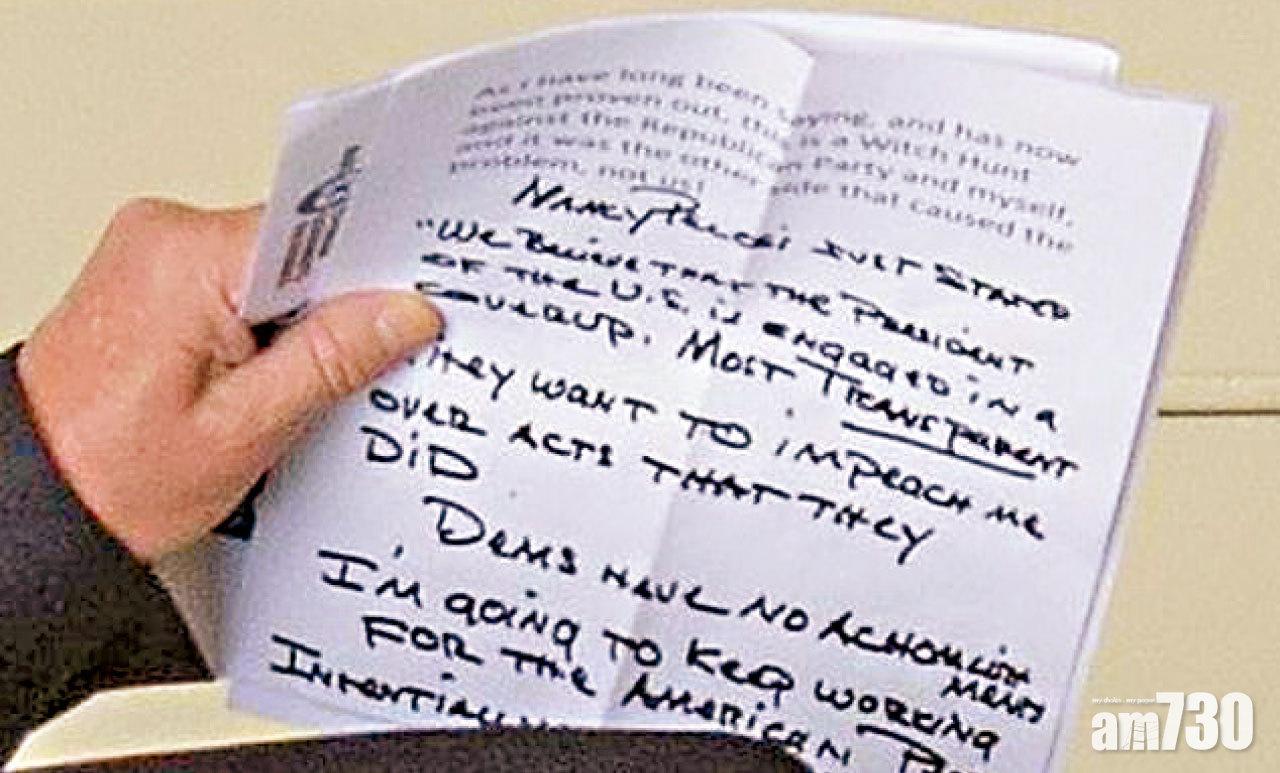 As I have long been saying, and has now
been proven out, this is a Witch Hunt
against the Republican Party and myself,
and it was the other side that caused the
problem, not us!
NANCY JUST STATED
"We Believe THAT THE PRESIDENT
OF THE U.S. is engaged in a
coverup. MOST TRANSPARENT
They want TO impeach me
OVER ACTS THAT THEY
DiD
DEMS HAVE NO
MENTS
I'M going TO Keep working
FOR THE AMERICAN
my choice . my paper
am730